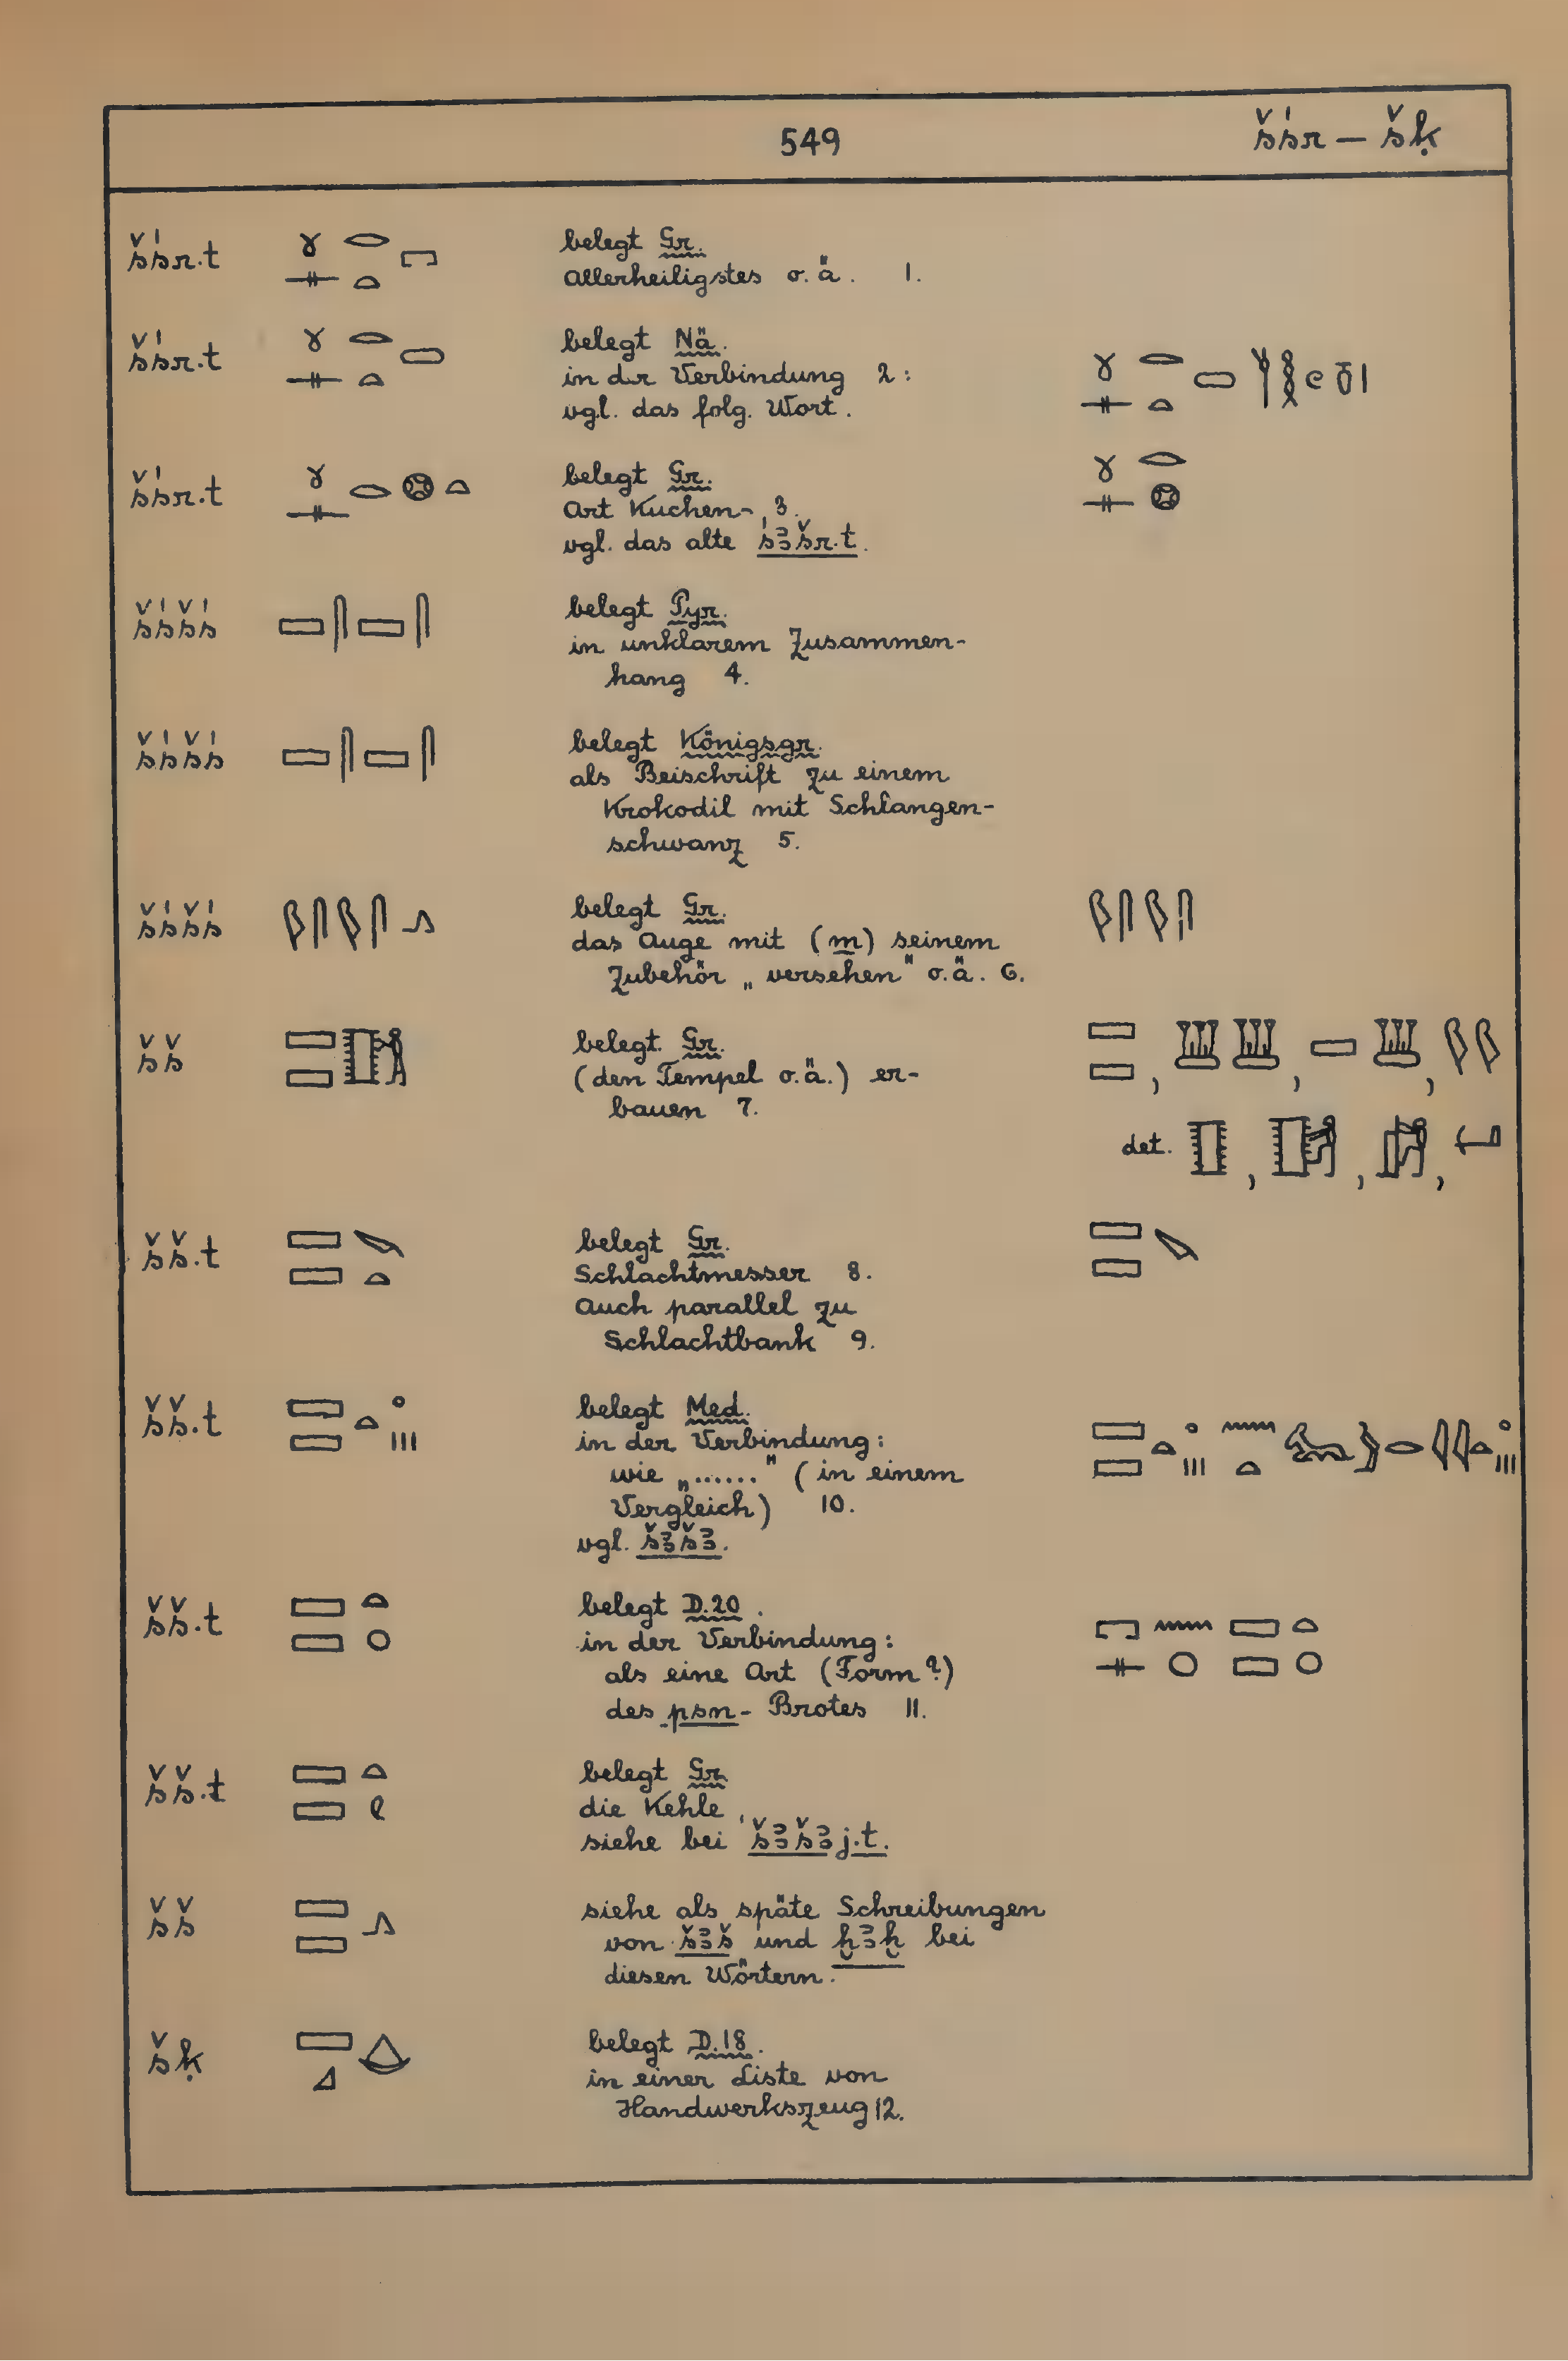 549 šśr – šḳ
šśr.t belegt Gr.
Allerheiligstes o.ä. 1.
šśr.t belegt Nä.
in der Verbindung 2:
vgl. das folg. Wort.
šśr.t belegt Gr.
Art Kuchen 3.
vgl. das alte śꜣšr.t.
šśšś belegt Pyr.
in unklarem Zusammen-
hang 4.
šśšś belegt Königsgr.
als Beischrift zu einem
Krokodil mit Schlangen-
schwanz 5.
šśšś belegt Gr.
das Auge mit (m) seinem
Zubehör „versehen" o.ä. 6.
šš belegt Gr.
(den Tempel o.ä.) er-
bauen 7.
det.
šš.t belegt Gr.
Schlachtmesser 8.
Auch parallel zu
Schlachtbank 9.
šš.t belegt Med.
in der Verbindung:
wie „......" (in einem
Vergleich) 10.
vgl. šꜣšꜣ.
šš.t belegt D.20.
in der Verbindung:
als eine Art (Form?)
des psn-Brotes 11.
šš.t belegt Gr.
die Kehle,
siehe bei šꜣšꜣj.t.
šš siehe als späte Schreibungen
von šꜣš und ḫꜣḫ bei
diesen Wörtern.
šḳ belegt D.18.
in einer Liste von
Handwerkszeug 12.